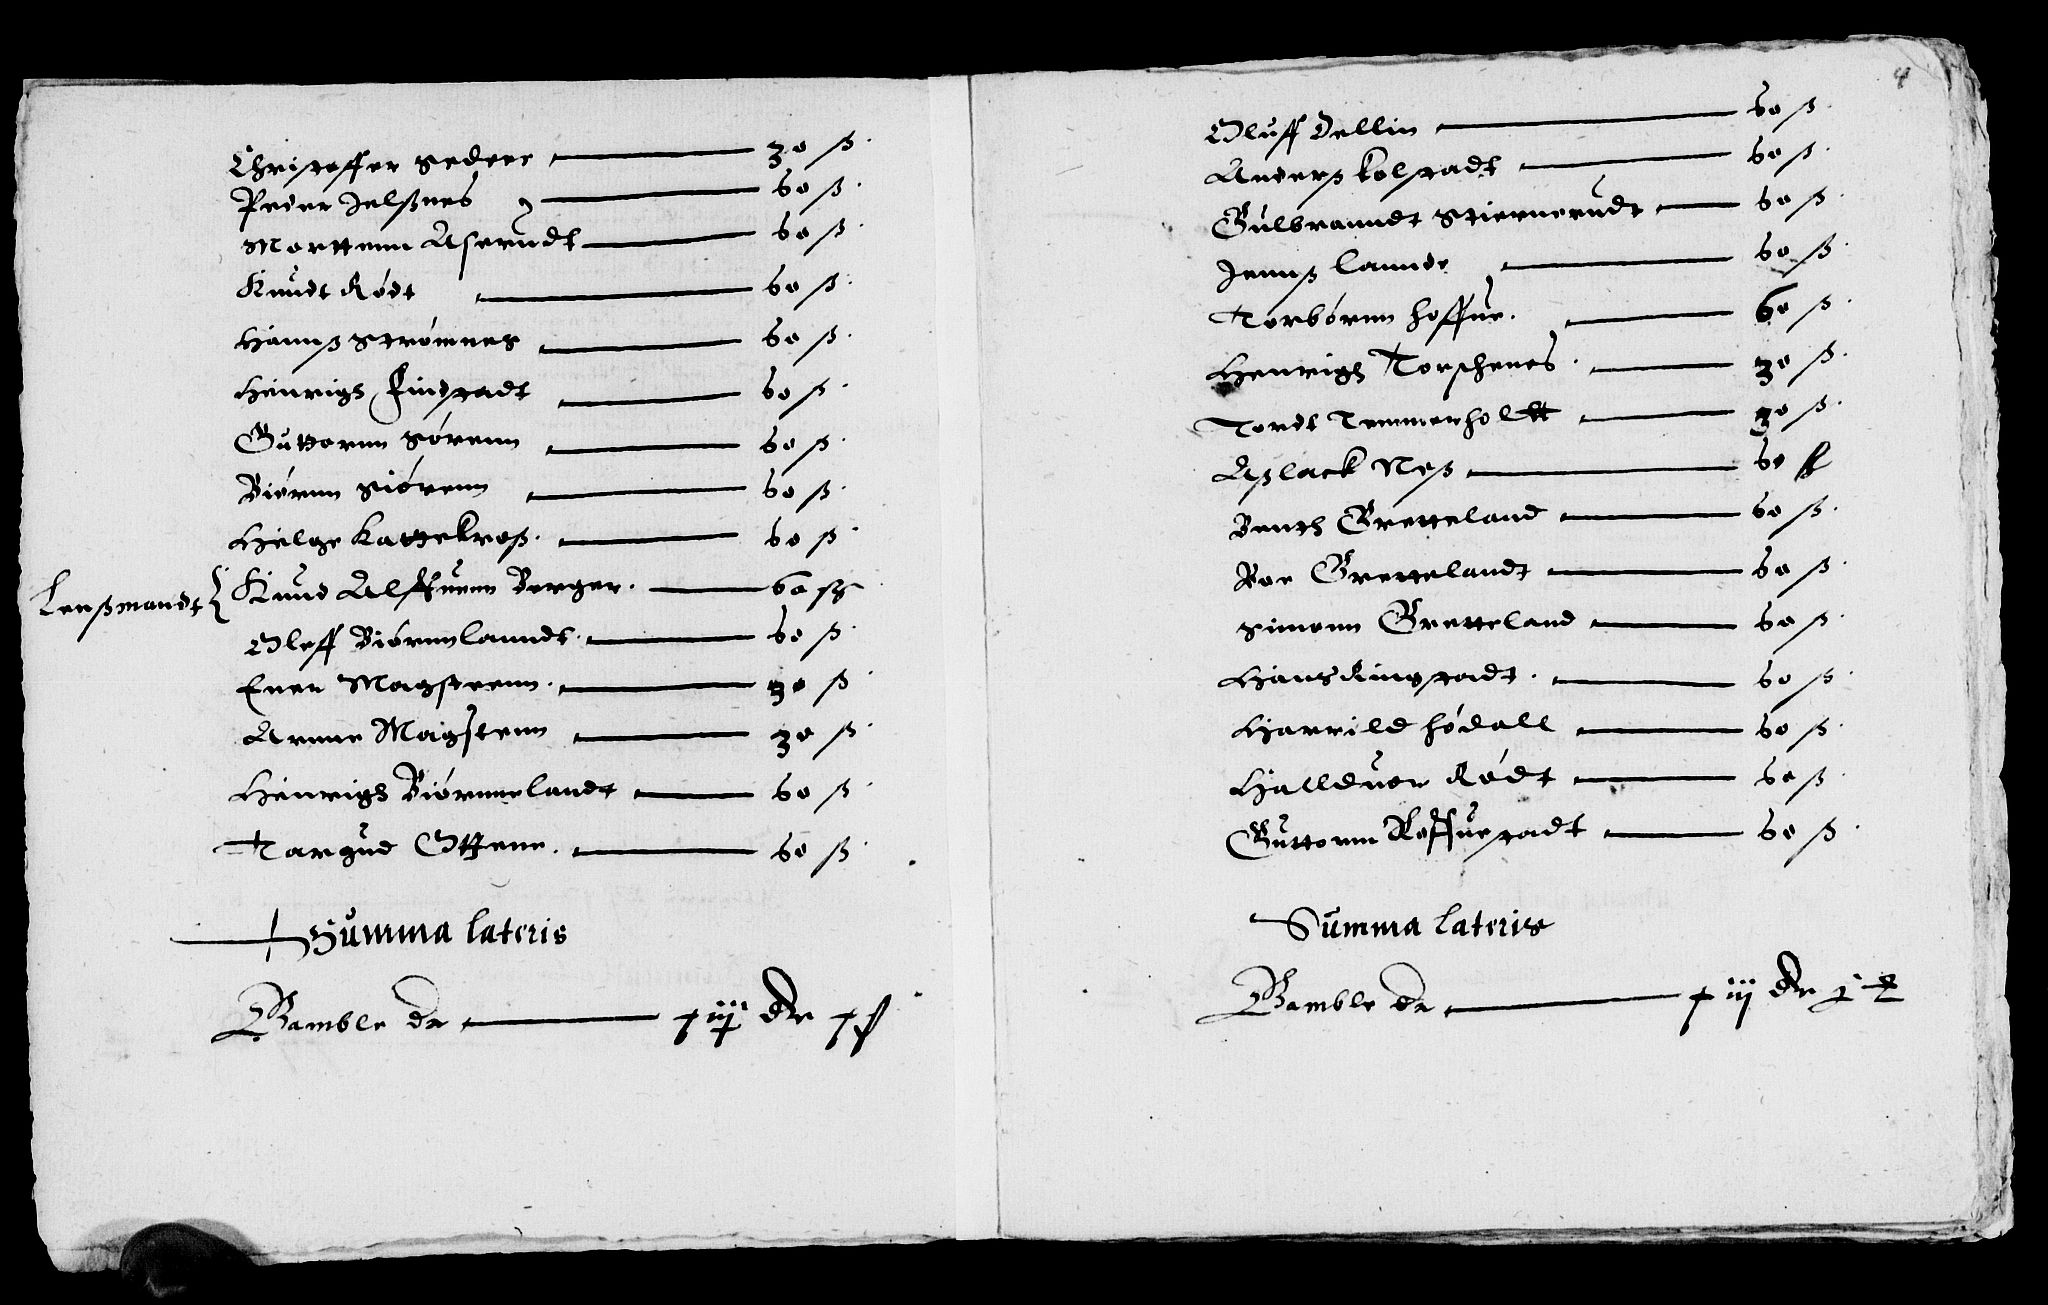 Christoffer Gedere 30 ß.
Peder Jelßnes 60 ß.
Morttenn Aserudt 60 ß.
Knudt Rødt 60 ß.
Hannß Strømnes 60 ß.
Henrigh Findstadt 60 ß.
Guttorm Sørenn 60 ß.
Biørnn Siørenn 60 ß.
Helge Kattekroß. 60 ß.
Lenßmandt Knud Berger. 60 ß
Oleff Biørnnlanndt. 60 ß.
Euen Magstenn. 30 ß.
Arnne Magstenn 30 ß.
Henrigh Biørnnelandt 60 ß.
Targud 60 ß.
Summa lateris
Bamble dr
4
Oluff Dellin 60 ß.
Anderß Kolstadt 60 ß.
Gulbranndt Stiernerudt 60 ß.
Jennß Lannde 60 ß.
Torbørnn Hoffue. 60 ß.
Henrigh Torschenes. 30 ß.
Tordt Temmerholtt 30 ß.
Aßlack Neß 60 ß
Benth Gretteland 60 ß.
Roe Grettelandt 60 ß.
Simonn Gretteland 60 ß.
Hans Ringstadt. 60 ß.
Harrild Fødall 60 ß.
Halleduor Rødt 60 ß.
Guttorm Roffuestadt 60 ß.
Summa lateris
Bamble dr